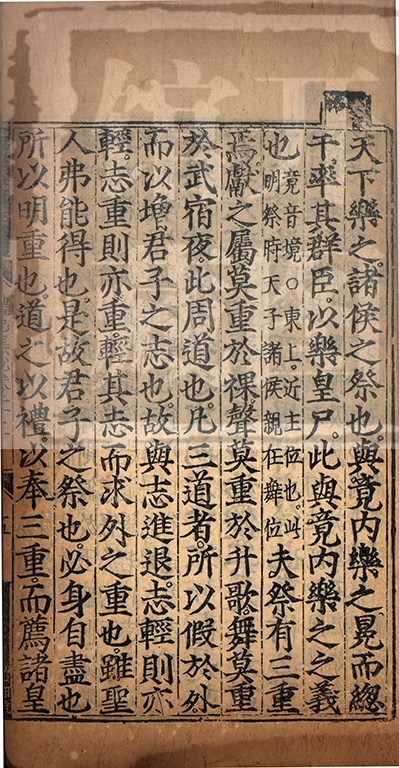 天下樂之。諸侯之祭也。與竟內樂之。冕而總
干率其群臣。以樂皇尸。此與竟內樂之之義
也竟音境○東上。近主位也。此明祭時天子諸侯親在舞位夫祭有三重
焉。獻之屬莫重於祼。聲莫重於升歌。舞莫重
於武宿夜。此周道也。凡三道者。所以假於外
而以增君子之志也。故與志進退。志輕則亦
輕。志重則亦重。輕其志而求外之重也。雖聖
人弗能得也。是故君子之祭也。必身自盡也
所以明重也。道之以禮。以奉三重。而薦諸皇